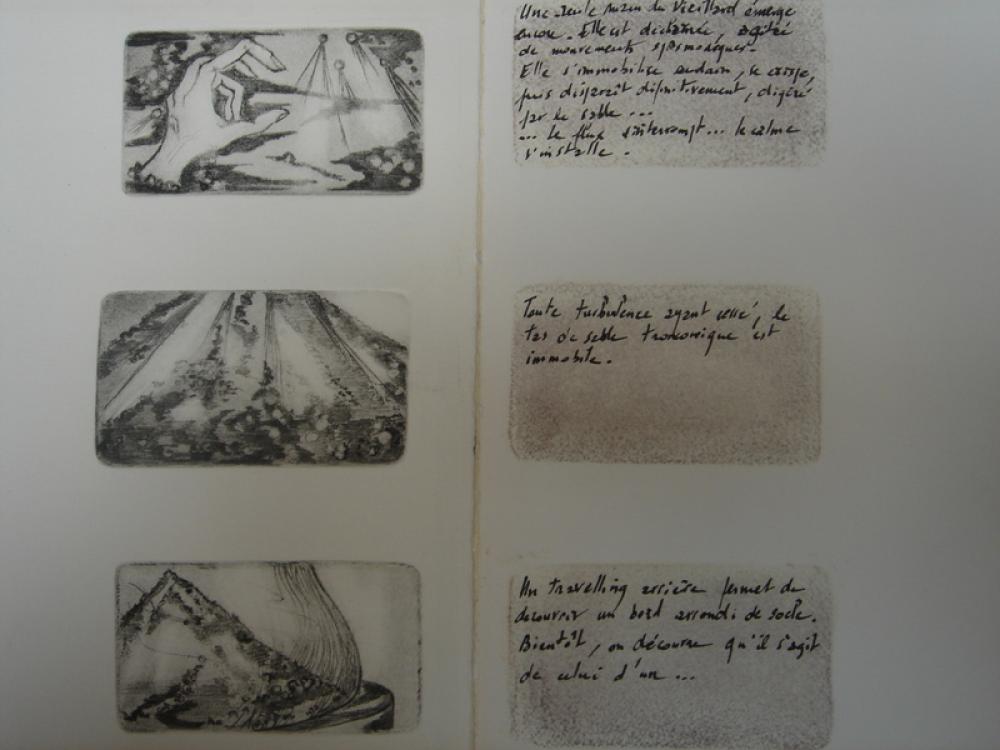 Une seule main du Vieillard émerge
encore. Elle est décharnée, agitée
de mouvements spasmodiques.
Elle s'immobilise soudain, se crispe,
puis disparaît définitivement, digérée
par le sable ...
... Le flux s'interrompt... le calme
s'installe.
Toute turbulence ayant cessé, le
tas de sable tronconique est
immobile.
Un travelling arrière permet de
découvrir un bord arrondi de socle.
Bientôt, on découvre qu'il s'agit
de celui d'un ...